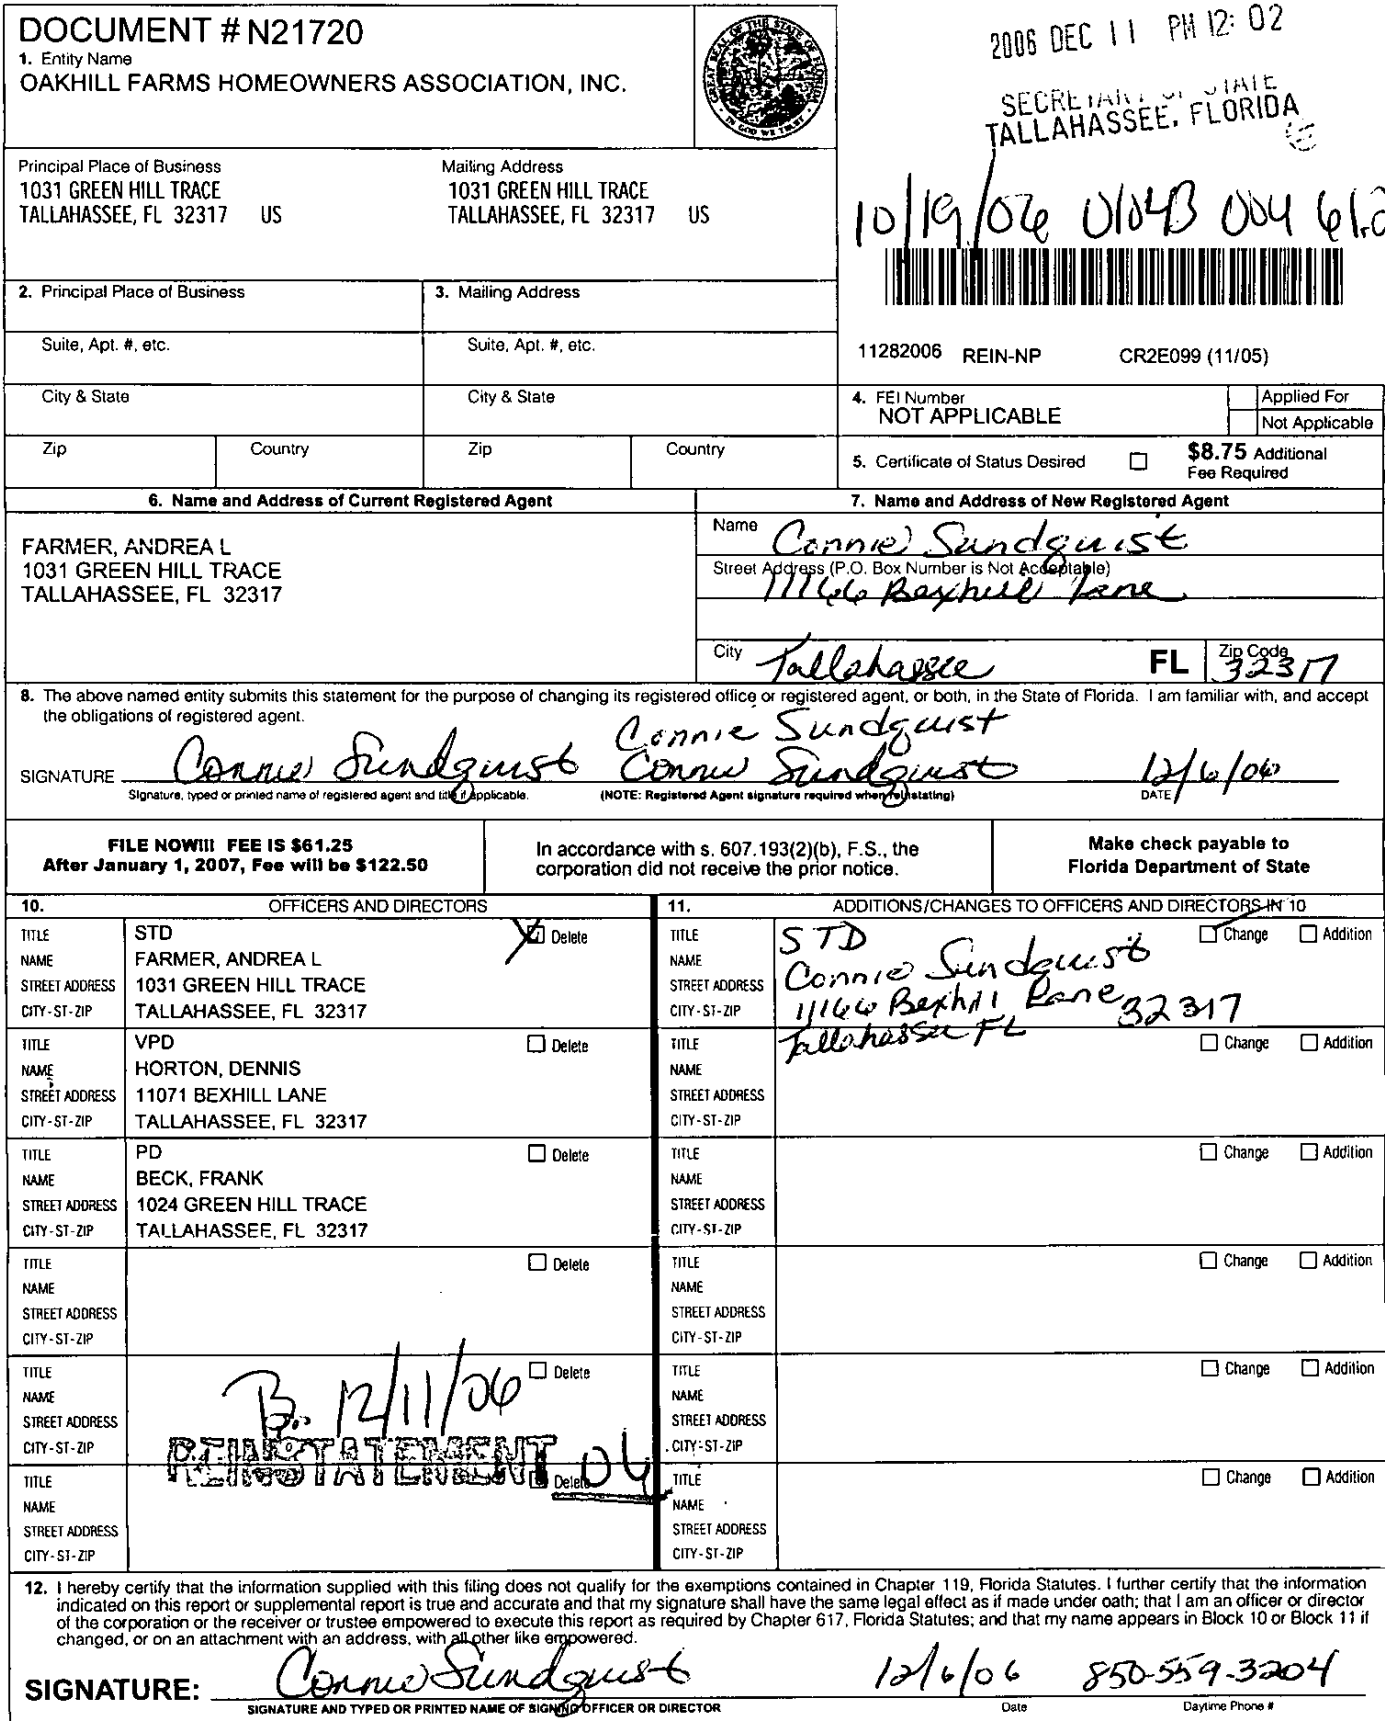 DOCUMENT # N21720
1. Entity Name
OAKHILL FARMS HOMEOWNERS ASSOCIATION, INC.
GREAT SEAL OF THE STATE OF FLORIDA
IN GOD WE TRUST
2006 DEC 11 PM 12:02
SECRETARY OF STATE
TALLAHASSEE, FLORIDA
Principal Place of Business
1031 GREEN HILL TRACE
TALLAHASSEE, FL 32317 US
Mailing Address
1031 GREEN HILL TRACE
TALLAHASSEE, FL 32317 US
10/19/06 004
2. Principal Place of Business
3. Mailing Address
Suite, Apt. #, etc.
Suite, Apt. #, etc.
11282006 REIN-NP CR2E099 (11/05)
City & State
City & State
4. FEI Number
NOT APPLICABLE
Applied For
Not Applicable
Zip Country
Zip Country
5. Certificate of Status Desired
$8.75 Additional
Fee Required
6. Name and Address of Current Registered Agent
FARMER, ANDREA L
1031 GREEN HILL TRACE
TALLAHASSEE, FL 32317
7. Name and Address of New Registered Agent
Name Connie Sundquist
Street Address (P.O. Box Number is Not Acceptable)
11166 Bexhill Lane
City Tallahassee FL Zip Code 32317
8. The above named entity submits this statement for the purpose of changing its registered office or registered agent, or both, in the State of Florida. I am familiar with, and accept
the obligations of registered agent.
Connie Sundquist
SIGNATURE Connie Sundquist Connie Sundquist 12/6/06
Signature, typed or printed name of registered agent and title if applicable. (NOTE: Registered Agent signature required when reinstating) DATE
FILE NOW!!! FEE IS $61.25
After January 1, 2007, Fee will be $122.50
In accordance with s. 607.193(2)(b), F.S., the
corporation did not receive the prior notice.
Make check payable to
Florida Department of State
10. OFFICERS AND DIRECTORS
TITLE STD Delete
NAME FARMER, ANDREA L
STREET ADDRESS 1031 GREEN HILL TRACE
CITY-ST-ZIP TALLAHASSEE, FL 32317
TITLE VPD Delete
NAME HORTON, DENNIS
STREET ADDRESS 11071 BEXHILL LANE
CITY-ST-ZIP TALLAHASSEE, FL 32317
TITLE PD Delete
NAME BECK, FRANK
STREET ADDRESS 1024 GREEN HILL TRACE
CITY-ST-ZIP TALLAHASSEE, FL 32317
TITLE Delete
NAME
STREET ADDRESS
CITY-ST-ZIP
TITLE Delete
NAME B. 12/11/06
STREET ADDRESS
CITY-ST-ZIP REINSTATEMENT 04
TITLE Delete
NAME
STREET ADDRESS
CITY-ST-ZIP
11. ADDITIONS/CHANGES TO OFFICERS AND DIRECTORS IN 10
TITLE STD Change Addition
NAME Connie Sundquist
STREET ADDRESS 11166 Bexhill Lane
CITY-ST-ZIP Tallahassee FL 32317
TITLE Change Addition
NAME
STREET ADDRESS
CITY-ST-ZIP
TITLE Change Addition
NAME
STREET ADDRESS
CITY-ST-ZIP
TITLE Change Addition
NAME
STREET ADDRESS
CITY-ST-ZIP
TITLE Change Addition
NAME
STREET ADDRESS
CITY-ST-ZIP
TITLE Change Addition
NAME
STREET ADDRESS
CITY-ST-ZIP
12. I hereby certify that the information supplied with this filing does not qualify for the exemptions contained in Chapter 119, Florida Statutes. I further certify that the information
indicated on this report or supplemental report is true and accurate and that my signature shall have the same legal effect as if made under oath; that I am an officer or director
of the corporation or the receiver or trustee empowered to execute this report as required by Chapter 617, Florida Statutes; and that my name appears in Block 10 or Block 11 if
changed, or on an attachment with an address, with all other like empowered.
SIGNATURE: Connie Sundquist 12/6/06 850-559-3204
SIGNATURE AND TYPED OR PRINTED NAME OF SIGNING OFFICER OR DIRECTOR Date Daytime Phone #